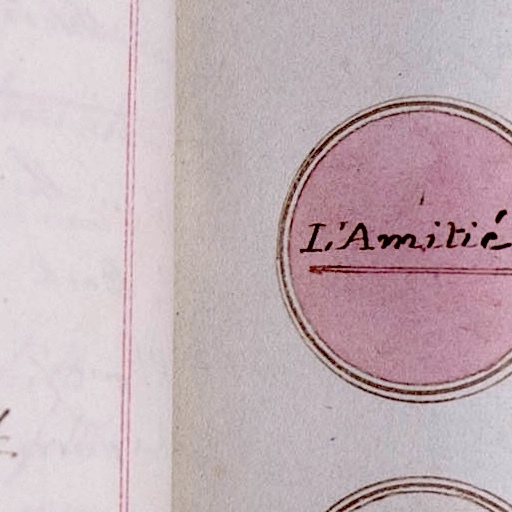 L'Amitié